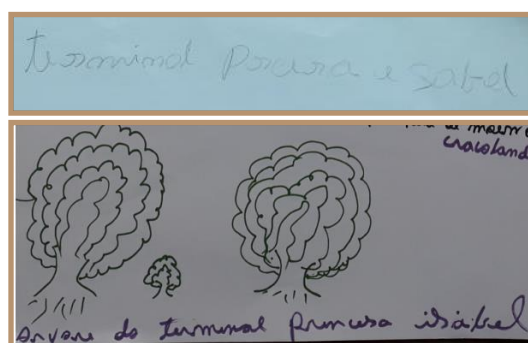 terminal Praça e sabel
cracoland
arvore do terminal princesa isabel